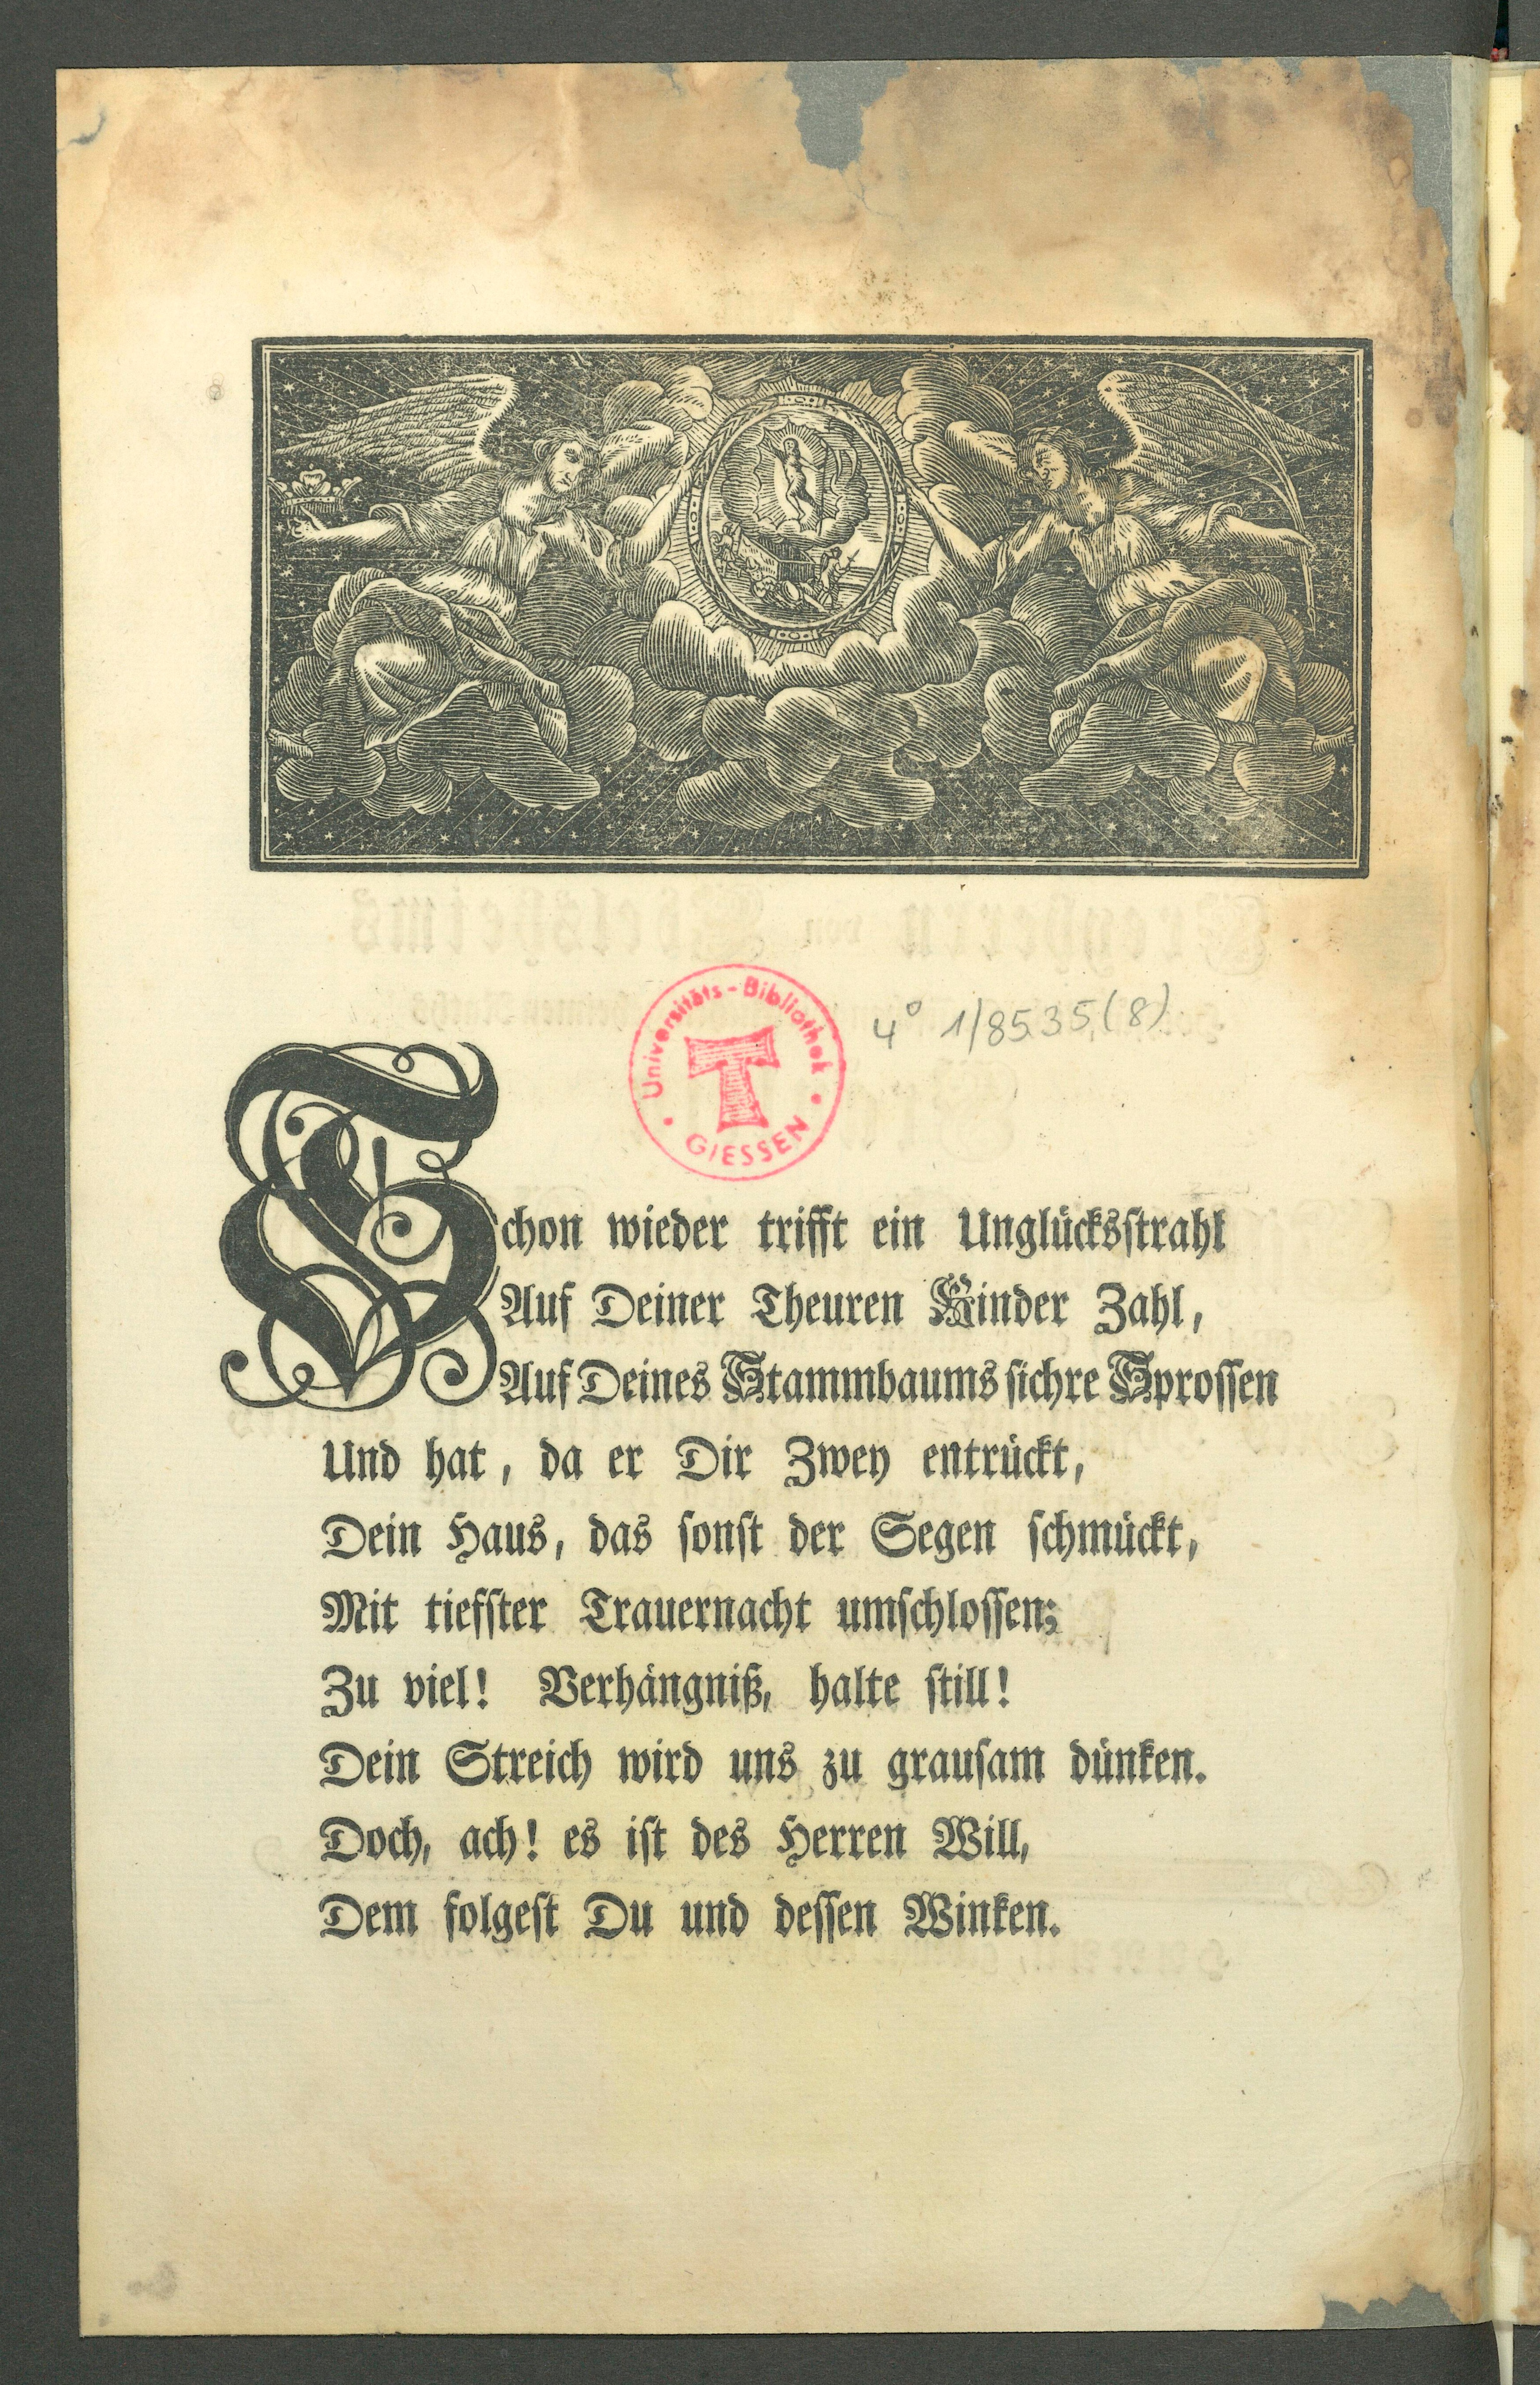 Universitäts-Bibliothek
GIESSEN
4° 1/8535(8)
Schon wieder trifft ein Unglücksstrahl
Auf Deiner Theuren Kinder Zahl,
Auf Deines Stammbaums sichre Sprossen
Und hat, da er Dir Zwey entrückt,
Dein Haus, das sonst der Segen schmückt,
Mit tiefster Trauernacht umschlossen;
Zu viel! Verhängniß, halte still!
Dein Streich wird uns zu grausam dünken.
Doch, ach! es ist des Herren Will,
Dem folgest Du und dessen Winken.